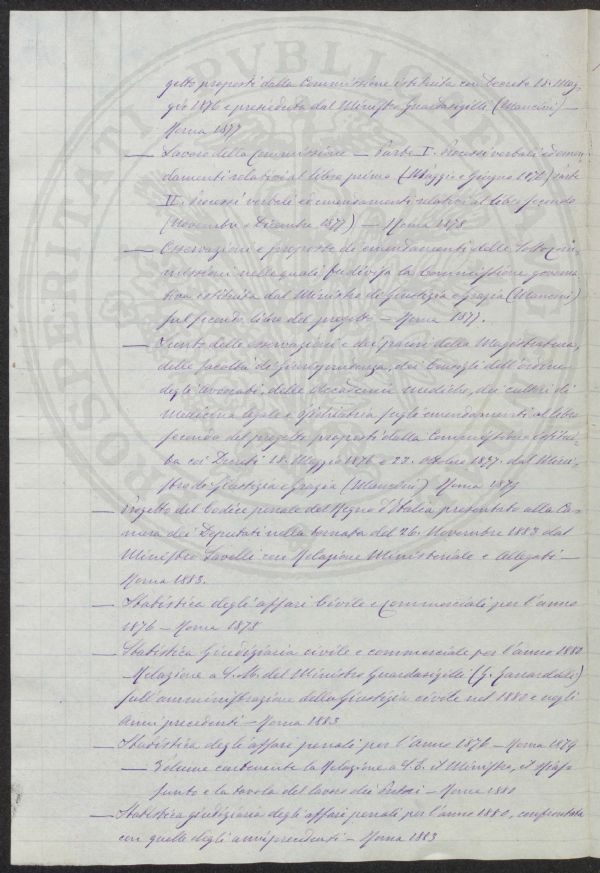 getto proposti dalla Commissione istituita con Decreto 18. Mag-
gio 1876 e presieduta dal Ministro Guardasigilli (Mancini) —
Roma 1877
— Lavoro della Commissione — Parte I. Processi verbali ed emen-
damenti relativi al libro primo (Maggio e Giugno 1876) Parte
II. Processi verbali ed emendamenti relativi al libro secondo
(Novembre e Dicembre 1877) — Roma 1878
— Osservazioni e proposte di emendamenti delle Sottocom-
missioni nelle quali fu divisa la Commissione governa-
tiva istituita dal Ministro di Giustizia e Grazia (Mancini)
sul secondo libro del progetto — Roma 1877.
— Sunto delle osservazioni e dei pareri della Magistratura,
delle facoltà di giurisprudenza, dei Consigli dell'ordine
degli Avvocati, delle Accademie mediche, dei cultori di
Medicina legale e psichiatria sugli emendamenti al libro
secondo del progetto proposti dalla Commissione istitui-
ta coi Decreti 18. Maggio 1876 e 23. ottobre dal Mini-
stro di Giustizia e Grazia (Mancini) Roma
— Progetto del Codice penale del Regno d'Italia presentato alla Ca-
mera dei Deputati nella tornata del 26. Novembre 1883 dal
Ministro Savelli con Relazione Ministeriale e allegati —
Roma 1883.
— Statistica degli affari Civile e Commerciali per l'anno
1876 — Roma 1878
— Statistica Giudiziaria civile e commerciale per l'anno 1880
— Relazione a S. M. del Ministro Guardasigilli (G. Zanardelli)
sull'amministrazione della Giustizia civile nel 1880 e negli
Anni precedenti — Roma 1883
— Statistica degli affari penali per l'Anno 1876 — Roma 1879
— Volume contenente la Relazione a S. E. il Ministro, il rias-
sunto e la tavola del lavoro dei Pretori — Roma
— Statistica giudiziaria degli affari penali per l'anno 1880, confrontata
con quelle degli anni precedenti — Roma 1883
PROSPERITATI PVBLICAE